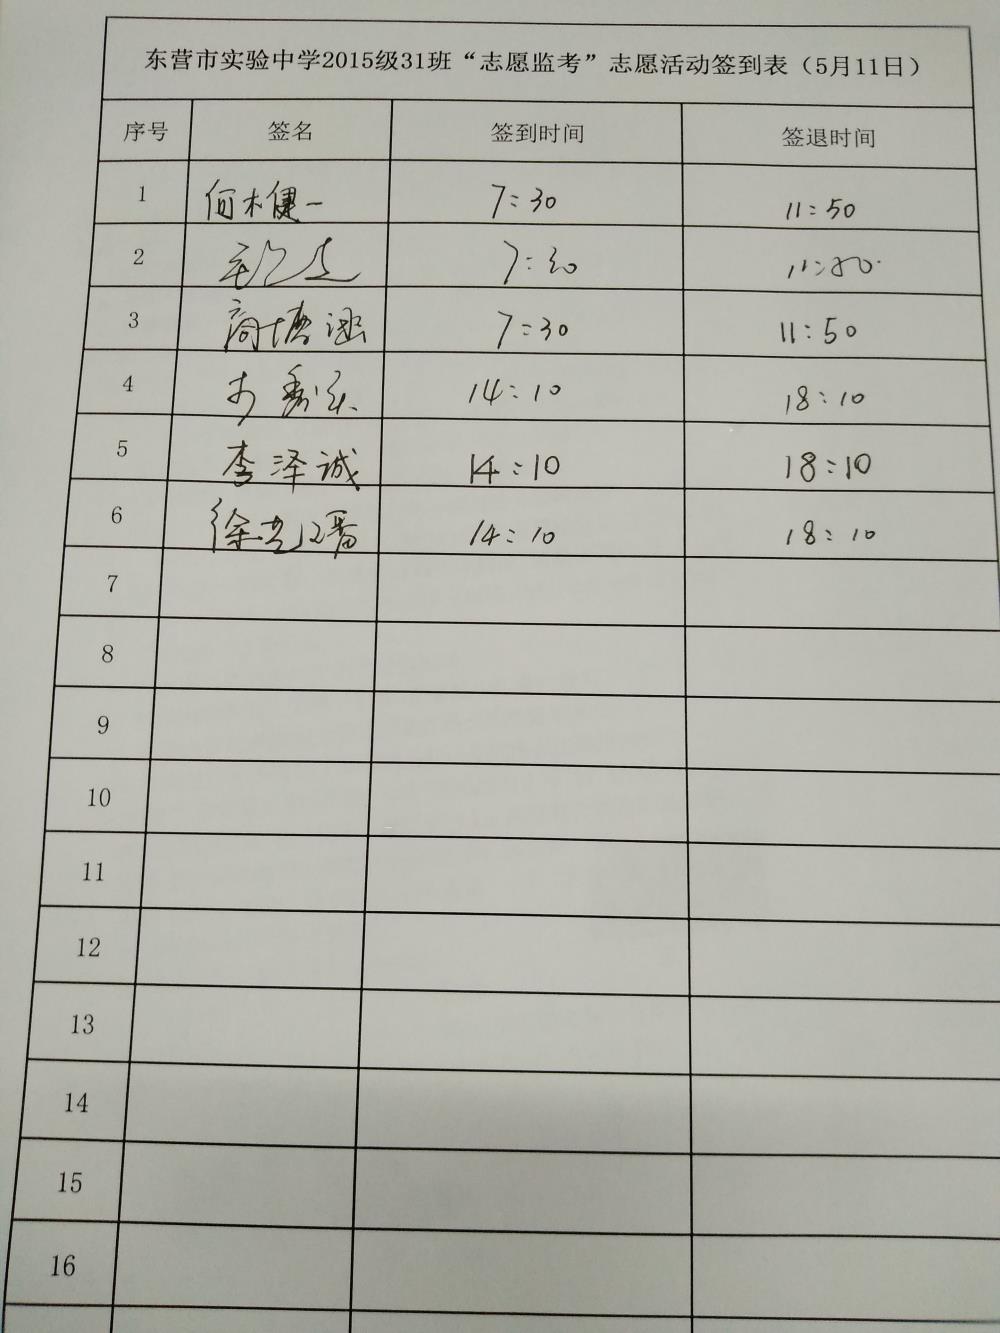 东营市实验中学2015级31班“志愿监考”志愿活动签到表（5月11日）
序号 签名 签到时间 签退时间
1 何木健一 7:30 11:50
2 7:30 11:50
3 商塘涵 7:30 11:50
4 14:10 18:10
5 李泽诚 14:10 18:10
6 徐 14:10 18:10
7
8
9
10
11
12
13
14
15
16